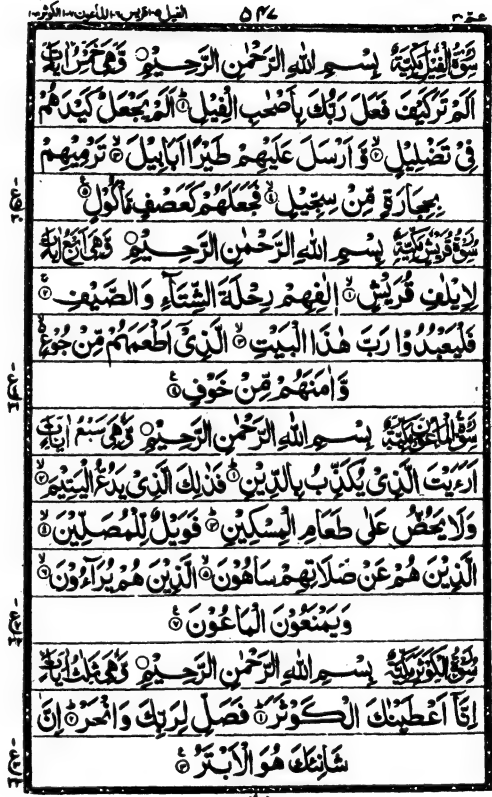 عمّ ٣٠ ٥٤٧ الفيل ١٠٥ قريش ١٠٦ الماعون ١٠٧ الكوثر ١٠٨
سُوْرَةُ الْفِيْلِ مَكِّيَّةٌ بِسْمِ اللهِ الرَّحْمٰنِ الرَّحِيْمِ وَهِيَ خَمْسُ اٰيَاتٍ
اَلَمْ تَرَ كَيْفَ فَعَلَ رَبُّكَ بِاَصْحٰبِ الْفِيْلِ ۱ اَلَمْ يَجْعَلْ كَيْدَهُمْ
فِيْ تَضْلِيْلٍ ۲ وَّ اَرْسَلَ عَلَيْهِمْ طَيْرًا اَبَابِيْلَ ۳ تَرْمِيْهِمْ
بِحِجَارَةٍ مِّنْ سِجِّيْلٍ ۴ فَجَعَلَهُمْ كَعَصْفٍ مَّاْكُوْلٍ ۵
سُوْرَةُ قُرَيْشٍ مَكِّيَّةٌ بِسْمِ اللهِ الرَّحْمٰنِ الرَّحِيْمِ وَهِيَ اَرْبَعُ اٰيَاتٍ
لِاِيْلٰفِ قُرَيْشٍ ۱ اٖلٰفِهِمْ رِحْلَةَ الشِّتَآءِ وَالصَّيْفِ ۲
فَلْيَعْبُدُوْا رَبَّ هٰذَا الْبَيْتِ ۳ الَّذِيْٓ اَطْعَمَهُمْ مِّنْ جُوْعٍ
وَّاٰمَنَهُمْ مِّنْ خَوْفٍ ۴
سُوْرَةُ الْمَاعُوْنِ مَكِّيَّةٌ بِسْمِ اللهِ الرَّحْمٰنِ الرَّحِيْمِ وَهِيَ سَبْعُ اٰيَاتٍ
اَرَءَيْتَ الَّذِيْ يُكَذِّبُ بِالدِّيْنِ ۱ فَذٰلِكَ الَّذِيْ يَدُعُّ الْيَتِيْمَ ۲
وَلَا يَحُضُّ عَلٰى طَعَامِ الْمِسْكِيْنِ ۳ فَوَيْلٌ لِّلْمُصَلِّيْنَ ۴
الَّذِيْنَ هُمْ عَنْ صَلَاتِهِمْ سَاهُوْنَ ۵ الَّذِيْنَ هُمْ يُرَآءُوْنَ ۶
وَيَمْنَعُوْنَ الْمَاعُوْنَ ۷
سُوْرَةُ الْكَوْثَرِ مَكِّيَّةٌ بِسْمِ اللهِ الرَّحْمٰنِ الرَّحِيْمِ وَهِيَ ثَلٰثُ اٰيَاتٍ
اِنَّآ اَعْطَيْنٰكَ الْكَوْثَرَ ۱ فَصَلِّ لِرَبِّكَ وَانْحَرْ ۲ اِنَّ
شَانِئَكَ هُوَ الْاَبْتَرُ ۳